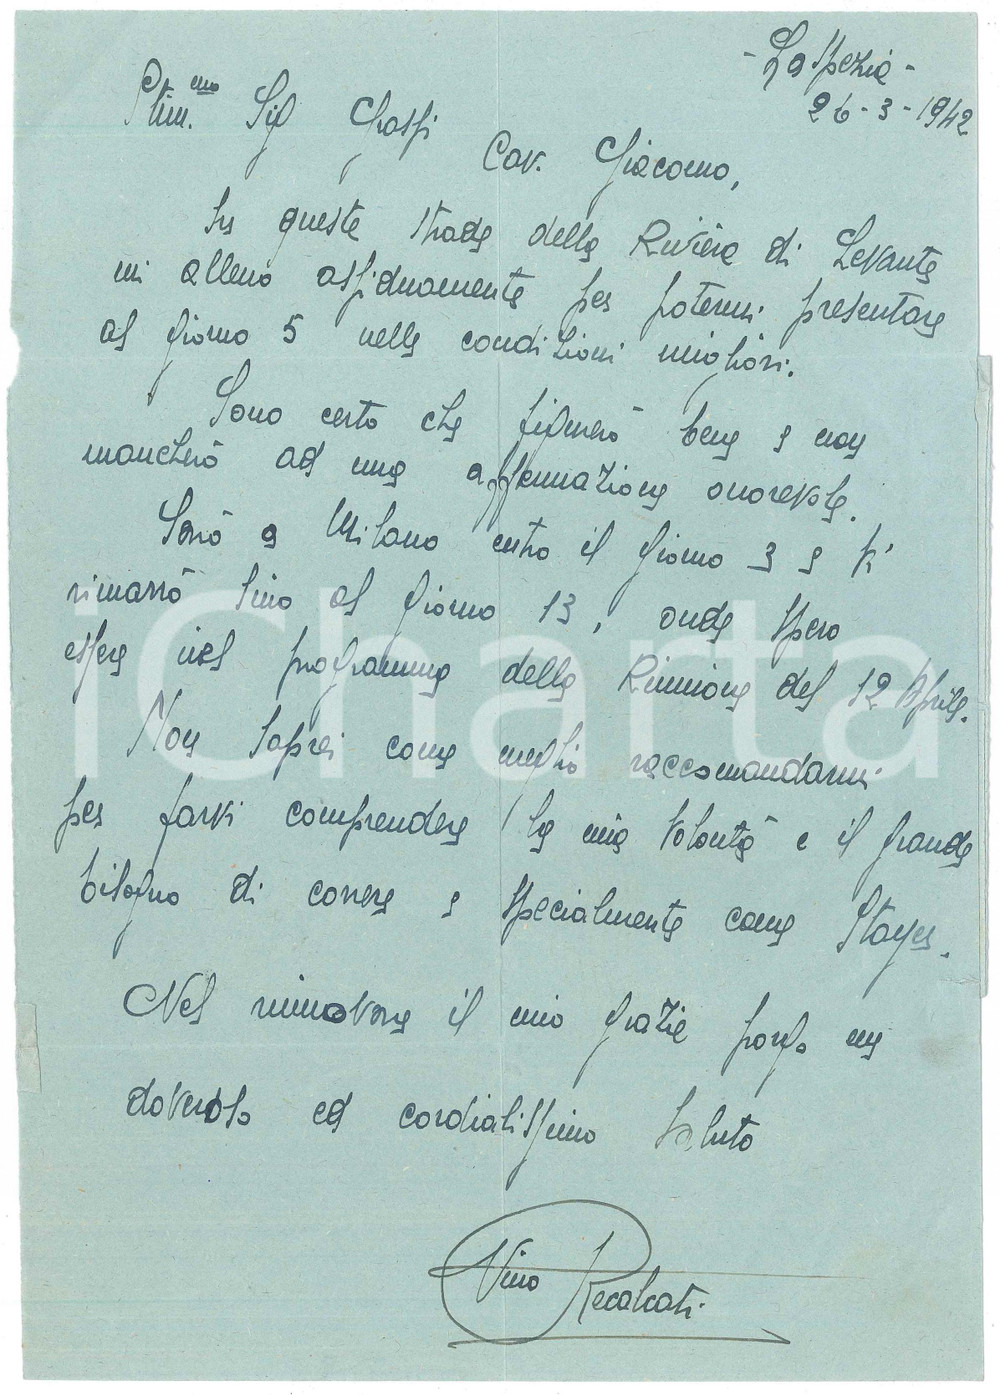 - La Spezia -
26-3-1942
Stim.mo Sig Grassi
Cav. Giacomo,
Su queste strade della Riviera di Levante
mi alleno assiduamente per potermi presentare
al giorno 5 nelle condizioni migliori.
Sono certo che figurerò bene e non
mancherò ad una affermazione onorevole.
Sarò a Milano entro il giorno 3 e vi
rimarrò sino al giorno 13, onde spero
essere nel programma della Riunione del 12 Aprile.
Non saprei come meglio raccomandarmi
per farvi comprendere la mia volontà e il grande
bisogno di correre e specialmente come Stayer.
Nel rinnovare il mio grazie porgo un
doveroso ed cordialissimo saluto
Vino Recalcati
iCharta